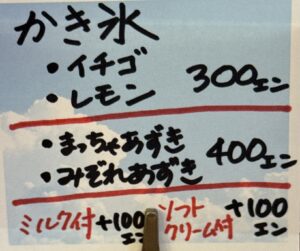 かき氷
・イチゴ
・レモン 300エン
・まっちゃあずき
・みぞれあずき 400エン
ミルク付 +100エン
ソフトクリーム付 +100エン